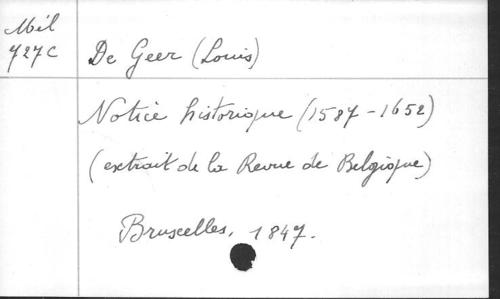 Mél
727C
De Geer (Louis)
Notice historique (1587-1652)
(extrait de la Revue de Belgique)
Bruxelles, 1847.